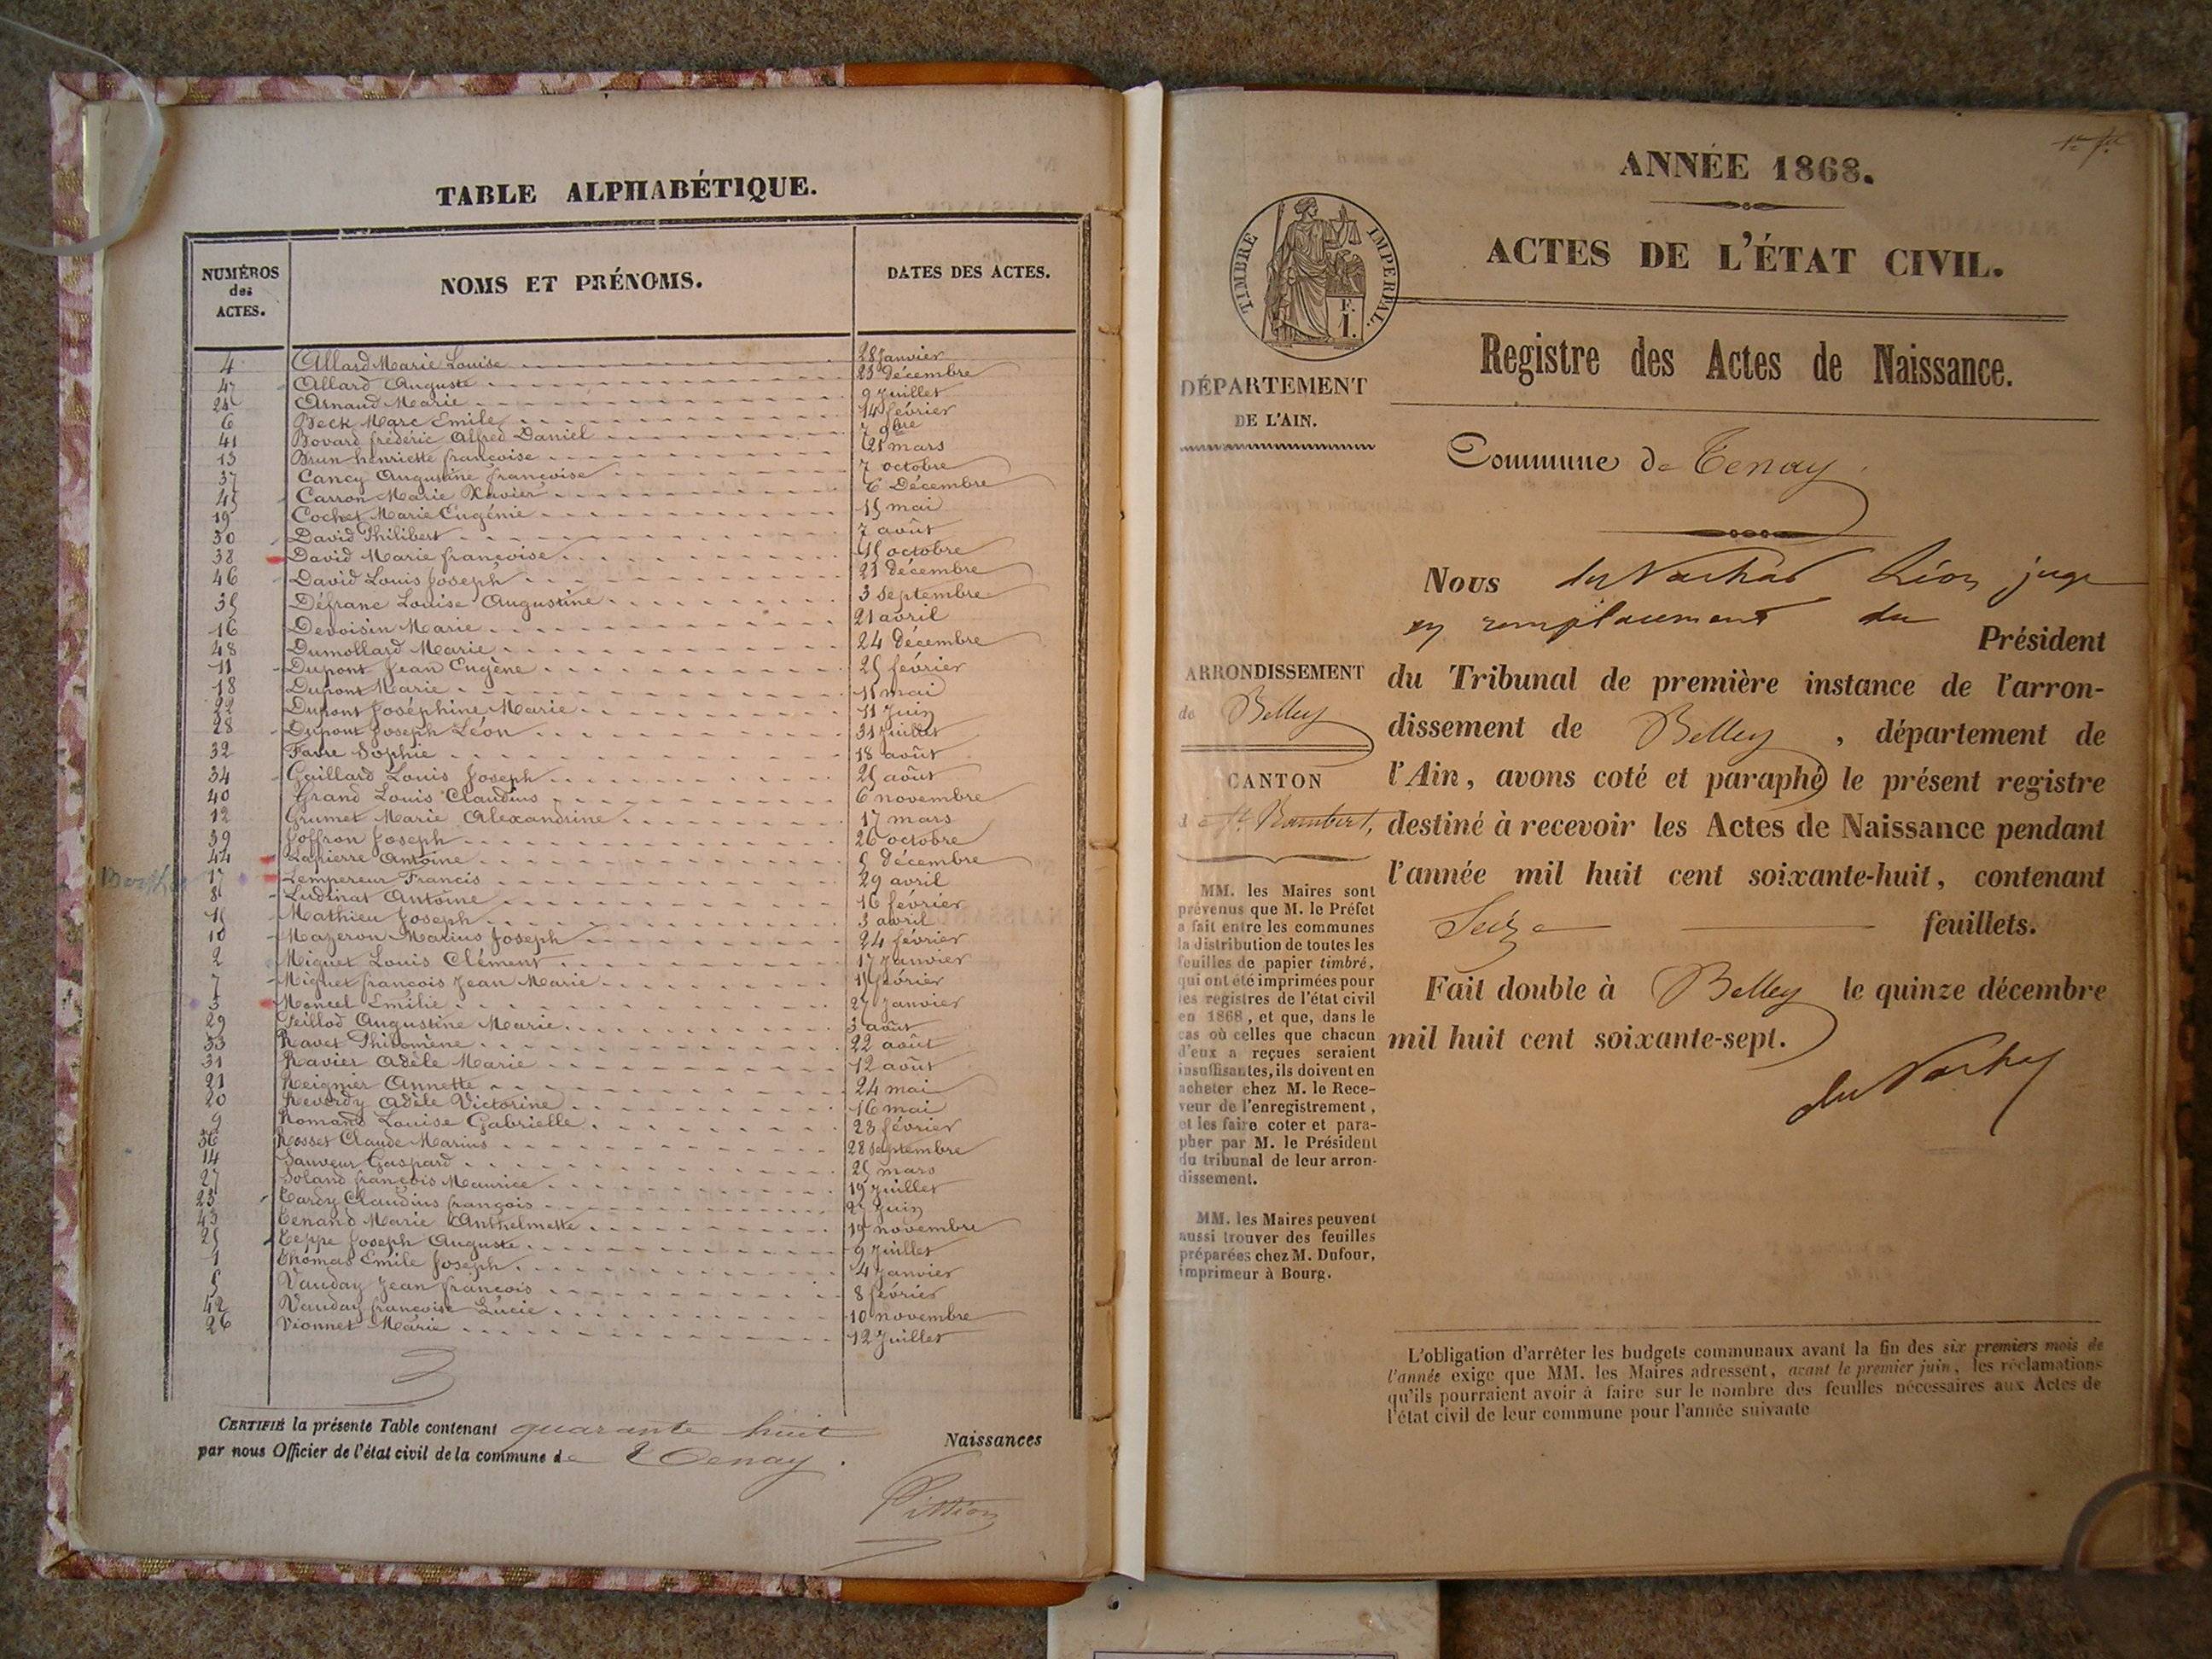 TABLE ALPHABÉTIQUE.
NUMÉROS des ACTES.
NOMS ET PRÉNOMS.
DATES DES ACTES.
4 Allard Marie Louise 28 Janvier
47 Allard Auguste 23 Décembre
24 Arnaud Marie 9 Juillet
6 Beck Marc Emile 14 février
41 Bovard frédéric Alfred Daniel 7 9bre
13 Brun henriette françoise 21 mars
37 Cancy Augustine françoise 7 octobre
45 Carron Marie Xavier 6 Décembre
19 Cochet Marie Eugénie 15 mai
30 David Philibert 7 août
38 David Marie françoise 15 octobre
46 David Louis Joseph 21 décembre
35 Défranc Louise Augustine 3 septembre
16 Devoisin Marie 21 avril
48 Dumollard Marie 24 Décembre
11 Dupont Jean Eugène 25 février
18 Dupont Marie 11 mai
22 Dupont Joséphine Marie 11 Juin
28 Dupont Joseph Léon 31 Juillet
32 Favre Sophie 18 août
34 Gaillard Louis Joseph 25 août
40 Grand Louis Claudius 6 novembre
12 Grumet Marie Alexandrine 17 mars
39 Joffron Joseph 26 octobre
44 Lapierre Antoine 5 décembre
17 Lempereur Francis 29 avril
8 Ludinat Antoine 16 février
15 Mathieu Joseph 3 avril
10 Mazeron Marius Joseph 24 février
2 Miguet Louis Clément 17 Janvier
7 Miguet françois Jean Marie 15 février
3 Moncel Emilie 27 Janvier
29 Peillod Augustine Marie 3 août
33 Ravet Philomène 22 août
31 Ravier Adèle Marie 12 août
21 Reignier Annette 24 mai
20 Reverdy Adèle Victorine 16 mai
9 Romand Louise Gabrielle 23 février
36 Rosset Claude Marius 28 septembre
14 Sauveur Gaspard 25 mars
27 Soland françois Maurice 19 Juillet
23 Tardy Claudius françois 25 Juin
43 Tenand Marie Anthelmette 19 novembre
25 Teppe Joseph Auguste 9 Juillet
1 Thomas Emile Joseph 4 Janvier
5 Vauday Jean françois 8 février
42 Vauday françoise Lucie 10 novembre
26 Vionnet Marie 12 Juillet
CERTIFIÉ la présente Table contenant quarante huit Naissances
par nous Officier de l'état civil de la commune de Tenay.
ANNÉE 1868.
ACTES DE L'ÉTAT CIVIL.
TIMBRE IMPERIAL.
F.
1.
Registre des Actes de Naissance.
DÉPARTEMENT
DE L'AIN.
Commune de Tenay.
Nous Léon juge
en remplacement du
Président
du Tribunal de première instance de l'arron-
dissement de Belley, département de
l'Ain, avons coté et paraphé le présent registre
destiné à recevoir les Actes de Naissance pendant
l'année mil huit cent soixante-huit, contenant
Seize feuillets.
Fait double à Belley le quinze décembre
mil huit cent soixante-sept.
ARRONDISSEMENT
de Belley
CANTON
de St. Rambert,
MM. les Maires sont
prévenus que M. le Préfet
a fait entre les communes
la distribution de toutes les
feuilles de papier timbré,
qui ont été imprimées pour
les registres de l'état civil
en 1868, et que, dans le
cas où celles que chacun
d'eux a reçues seraient
insuffisantes, ils doivent en
acheter chez M. le Rece-
veur de l'enregistrement,
et les faire coter et para-
pher par M. le Président
du tribunal de leur arron-
dissement.
MM. les Maires peuvent
aussi trouver des feuilles
préparées chez M. Dufour,
imprimeur à Bourg.
L'obligation d'arrêter les budgets communaux avant la fin des six premiers mois de
l'année exige que MM. les Maires adressent, avant le premier juin, les réclamations
qu'ils pourraient avoir à faire sur le nombre des feuilles nécessaires aux Actes de
l'état civil de leur commune pour l'année suivante